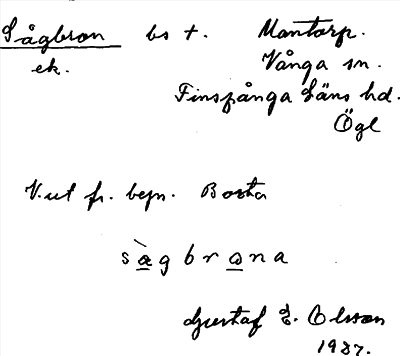 Sågbron bs t. Mantorp.
ek. Vånga sn.
Finspånga Läns hd.
Ögl
V.ut fr. bejn. Borta
sàgbrona
Gustaf E. Olsson
1937.